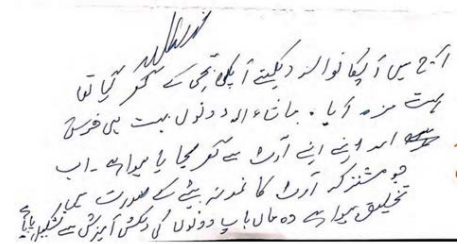 آج میں آپکا نواسہ دیکھنے آپکی بچی کے گھر گیا تھا
بہت مزہ آیا۔ ماشاءاللہ دونوں بہت ہی خوش
اور اپنے اپنے آرٹ سے گھر سجایا ہوا ہے۔ اب
جو مشترکہ آرٹ کا نمونہ بیٹے کے صورت میں
تخلیق ہوا ہے وہ ماں باپ دونوں کی دلکش آمیزش سے تشکیل پایا ہے